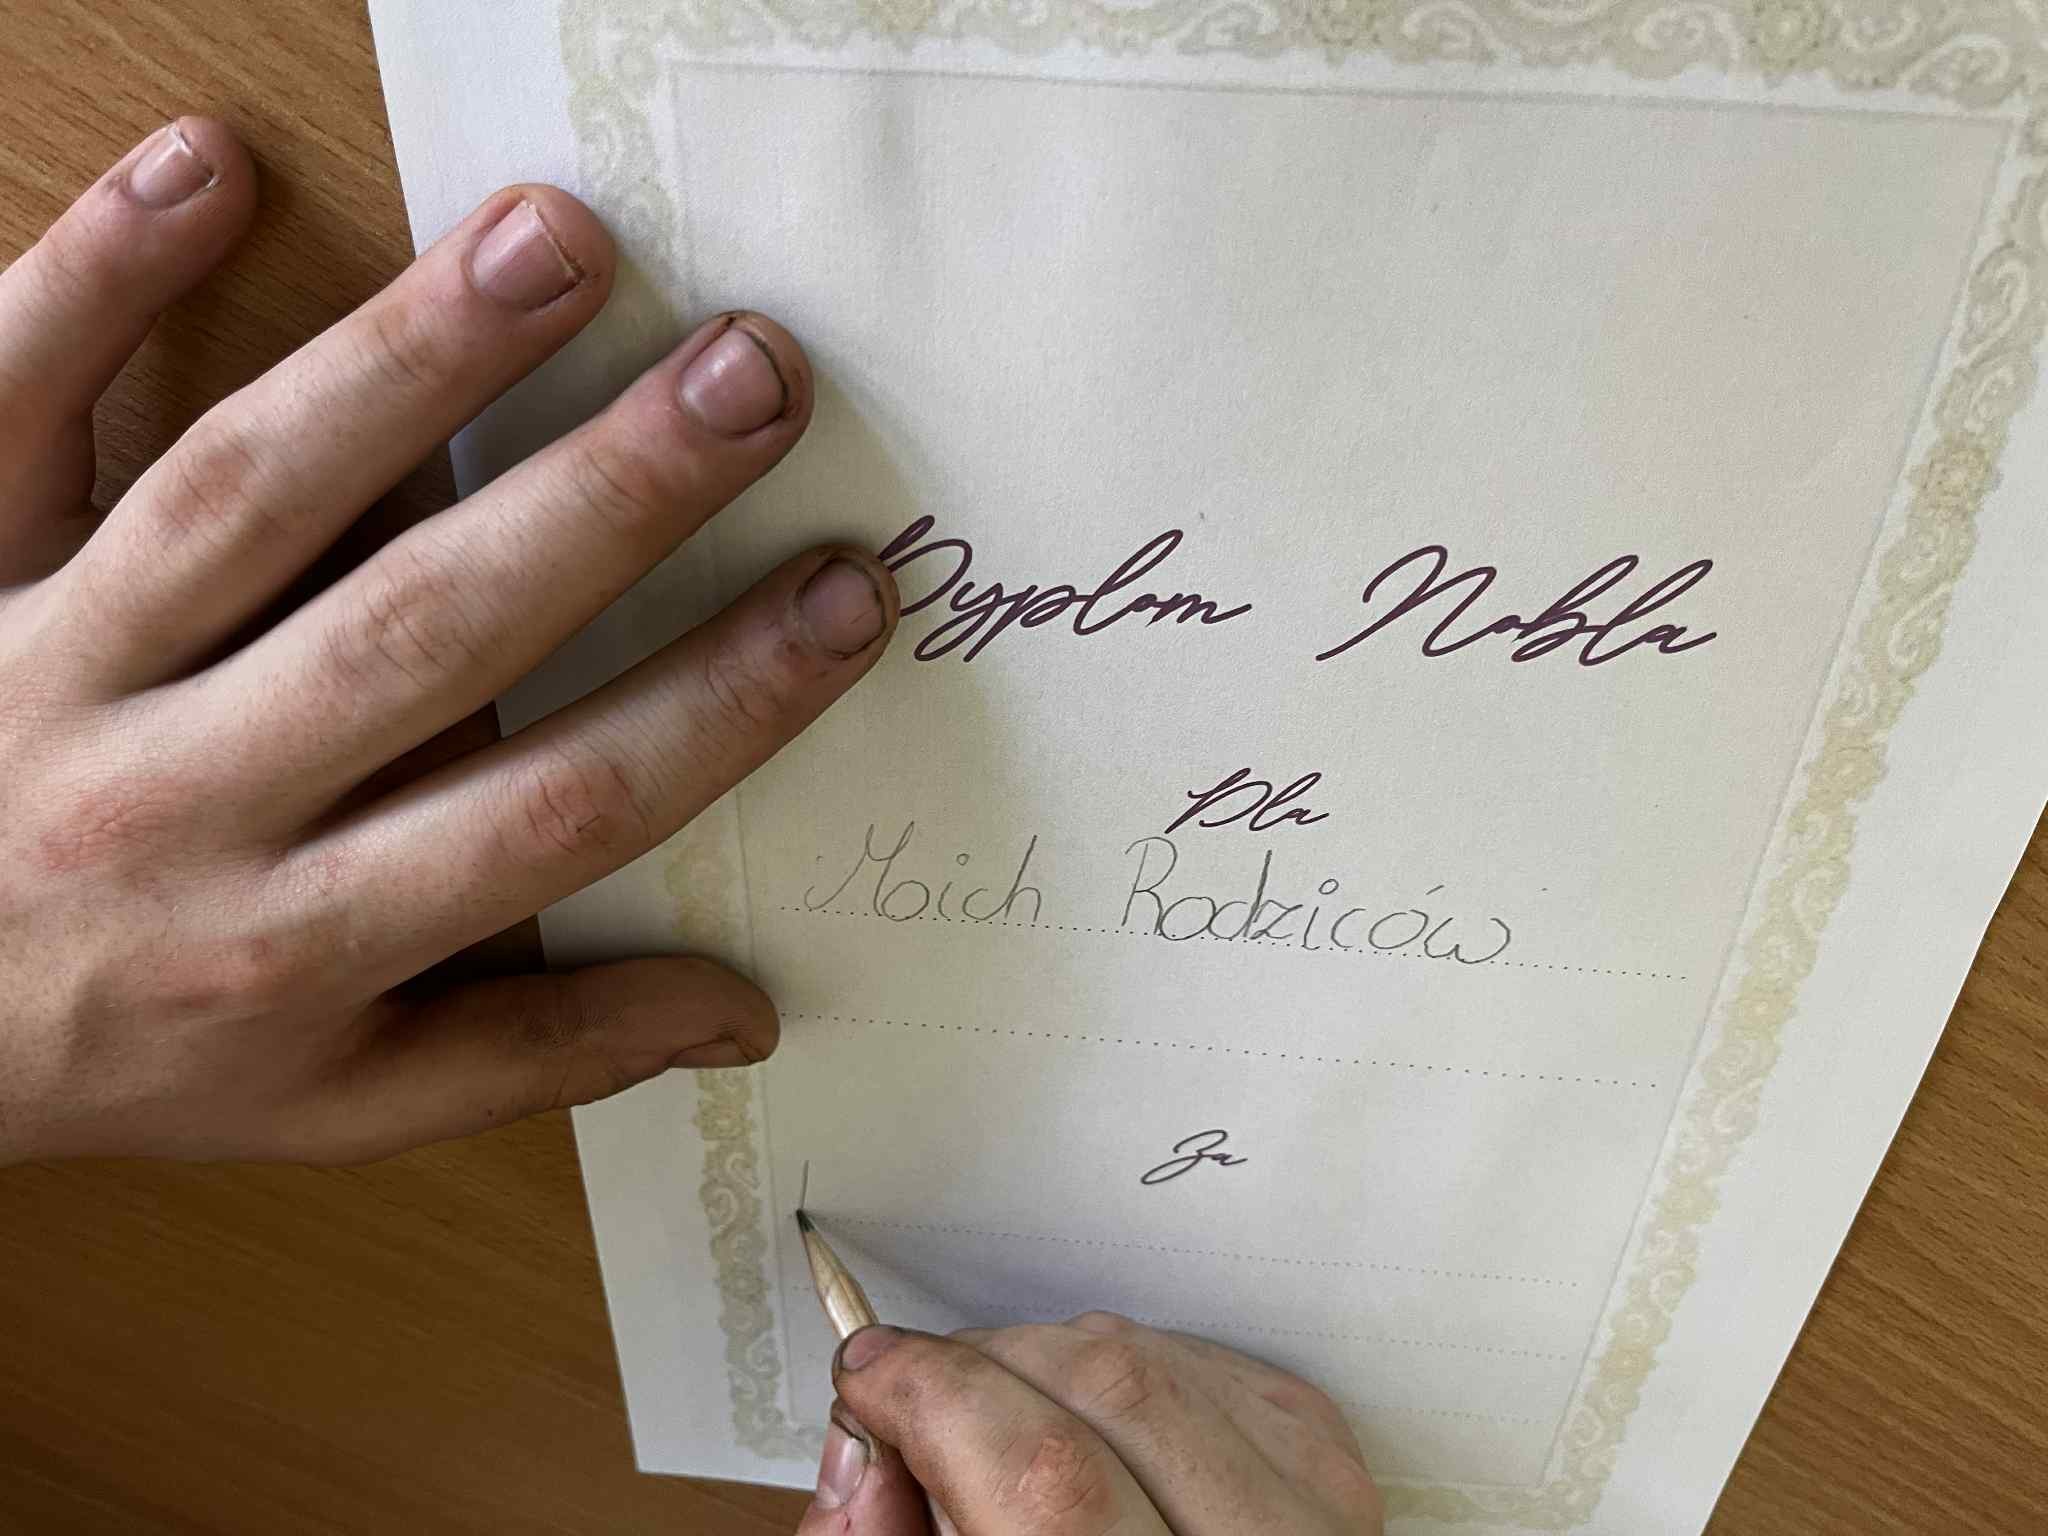 Dyplom Nobla
Dla
Moich Rodziców
Za